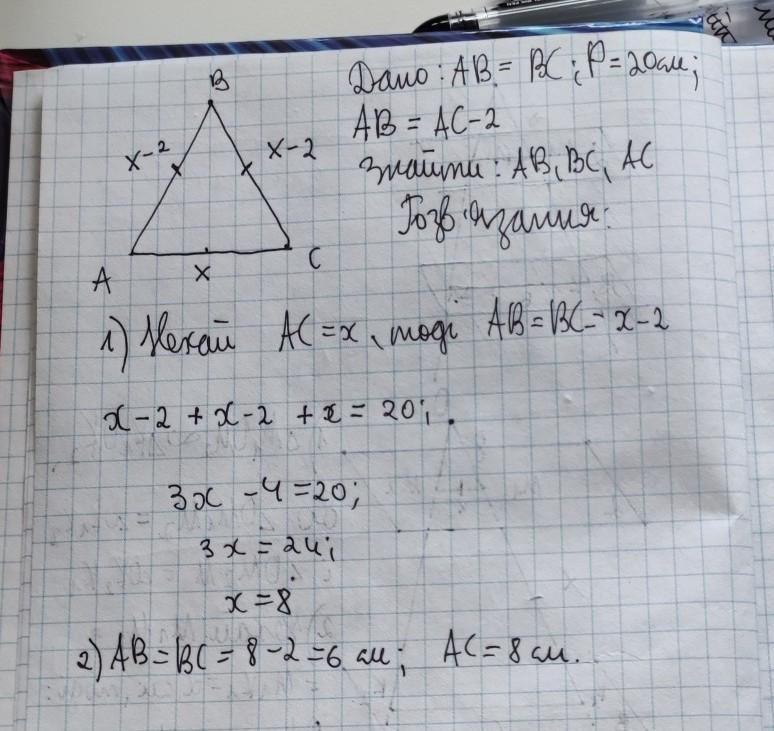 B
Дано: AB = BC; P = 20см;
x-2
x-2
AB = AC-2
Знайти: AB, BC, AC
Розв'язання:
A
x
C
1) Нехай AC = x, тоді AB = BC = x-2
x-2 + x-2 + x = 20;
3x - 4 = 20;
3x = 24;
x = 8
2) AB = BC = 8-2 = 6 см; AC = 8 см.